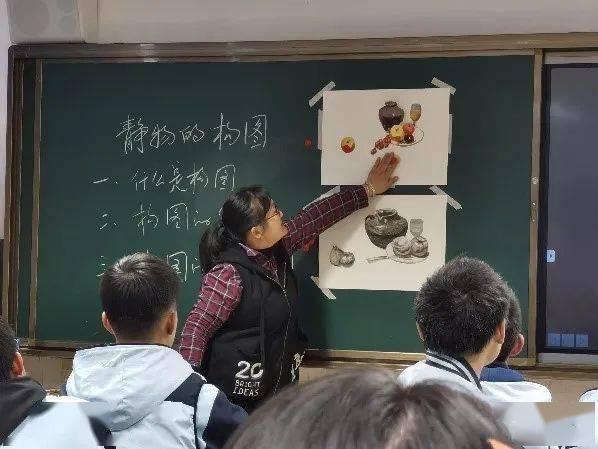 静物的构图
一、什么是构图
二、构图
三、 图
20
BRIGHT
IDEAS